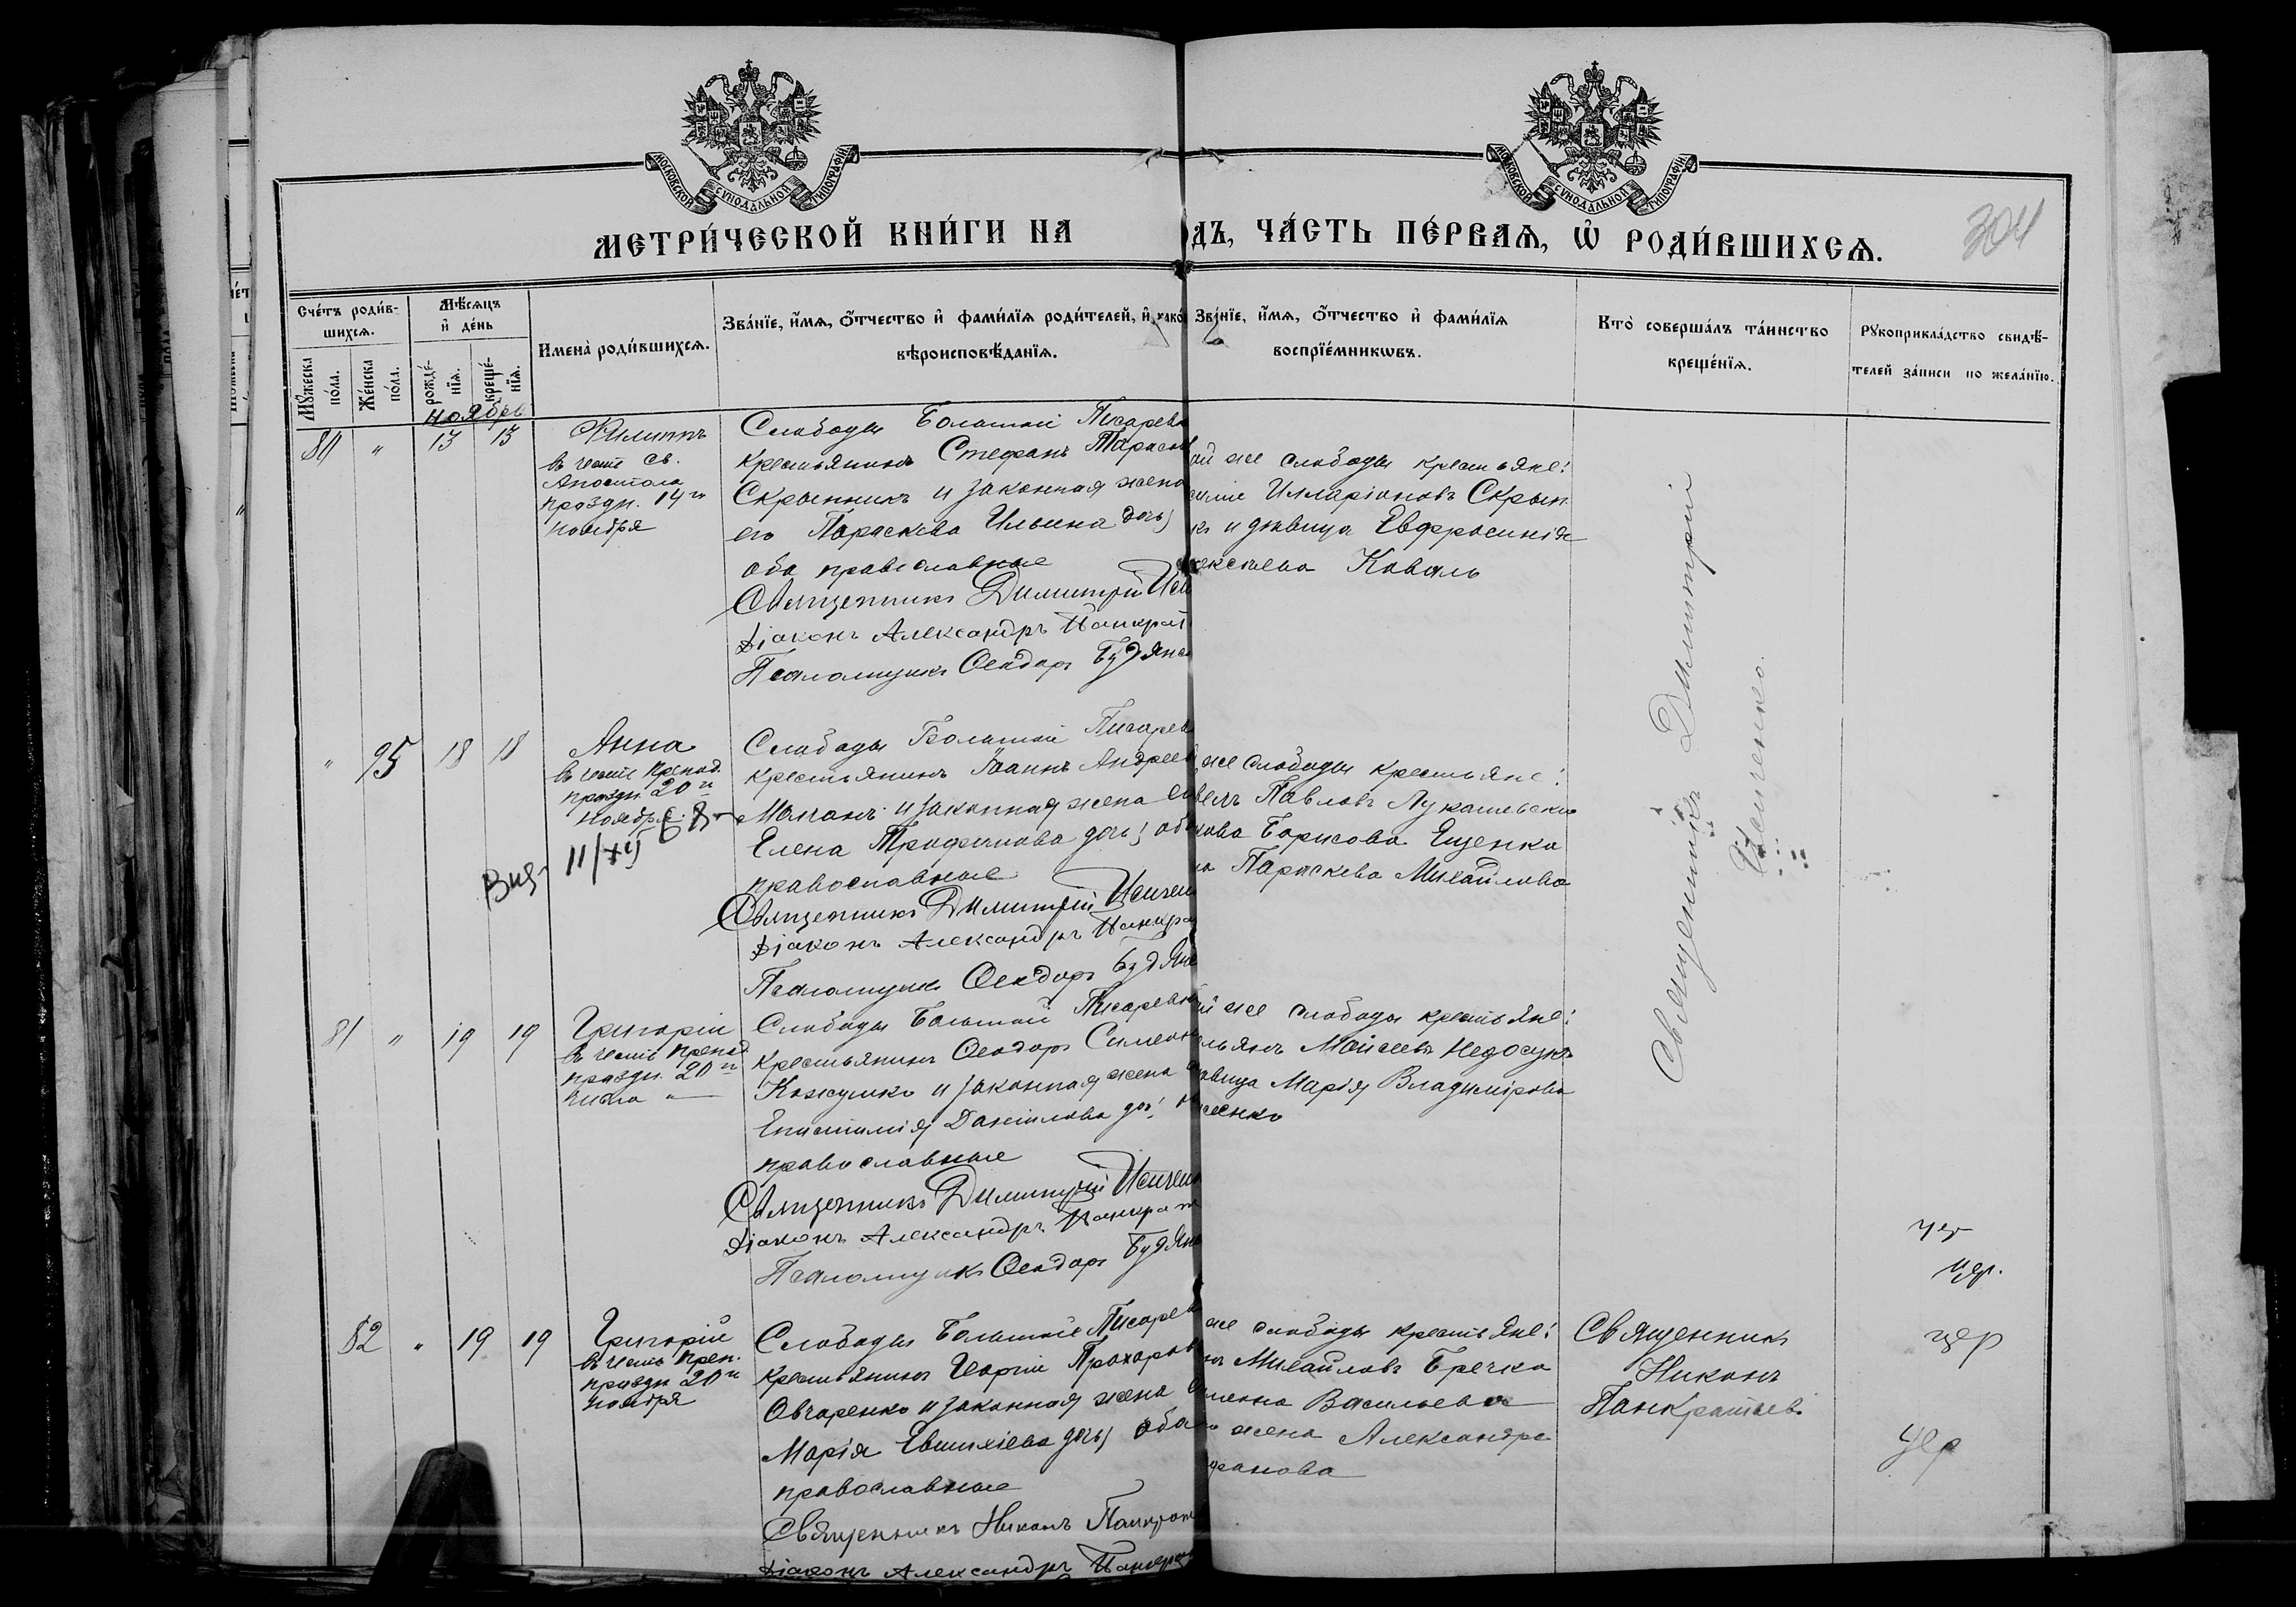 МОСКОВСКОЙ СѴНОДАЛЬНОЙ ТИПОГРАФІИ
МОСКОВСКОЙ СѴНОДАЛЬНОЙ ТИПОГРАФІИ
МЕТРИ́ЧЕСКОЙ КНИ́ГИ НА
ДЪ, ЧА́СТЬ ПЕ́РВАѦ, Ѡ҆ РОДИ́ВШИХСѦ.
304
Сче́тъ роди́в-
шихсѧ.
Мꙋ́жеска по́ла.
Же́нска по́ла.
Мѣ́сѧцъ
и҆ де́нь
рожде́-
нїѧ.
креще́-
нїѧ.
Имена̀ роди́вшихсѧ.
Зва́нїе, и҆́мѧ, ѻ҆́тчество и҆ фами́лїѧ роди́телей, и҆ како
вѣроисповѣ́данїѧ.
Зва́нїе, и҆́мѧ, ѻ҆́тчество и҆ фами́лїѧ
воспрїе́мникѡвъ.
Кто̀ соверша́лъ та́инство
креще́нїѧ.
Рꙋкоприкла́дство свидѣ́-
телей за́писи по жела́нїю.
ноябрь
80 " 13 13
Филиппъ
въ честь св.
Апостола
праздн. 14го
ноября
Слободы Большой Писарев
крестьянинъ Стефанъ Тарасов
Скрынникъ и законная жена
его Параскева Ильина дочь,
оба православные
Священникъ Димитрій Исич
Діаконъ Александръ Панкрат
Псаломщикъ Ѳеодоръ Будянс
ой же слободы крестьяне:
Илларіоновъ Скрын
къ и дѣвица Евфросинія
ексѣева Коваль
Священникъ Димитрій
Исиченко.
" 95 18 18
Анна
въ честь препод.
праздн. 20го
ноября.
Вид. 11/XII
Слободы Большой Писарев
крестьянинъ Іоаннъ Андреев
и законная жена его
Елена Трофимова дочь, оба
православные
Священникъ Димитрій Исичен
Діаконъ Александръ Панкра
Псаломщикъ Ѳеодоръ Будян
же слободы крестьяне:
Павловъ Лукашевск
кова Борисова Ященко
на Параскева Михайлова
81 " 19 19
Григорій
въ честь препод
праздн. 20го
числа "
Слободы Большой Писаревк
крестьянинъ Ѳеодоръ Симеон
Кожушко и законная жена
Епистимія Даніилова дочь,
православные
Священникъ Димитрій Исичен
Діаконъ Александръ Панкрат
Псаломщикъ Ѳеодоръ Будян
й же слободы крестьяне:
льянъ Моисеевъ Недосукъ
ѣвица Марія Владимірова
сенко
чер
чер.
82 " 19 19
Григорій
въ честь преп.
праздн 20го
ноября
Слободы Большой Писарев
крестьянинъ Георгій Прохоров
Овчаренко и законная жена
Марія Евтихіева дочь, оба
православные
Священникъ Никонъ Панкрат
Діаконъ Александръ Панкрат
же слободы крестьяне:
нъ Михайловъ Бречко
Васильева
жена Александра
фанова
Священникъ
Никонъ
Панкратьев.
чер
чер